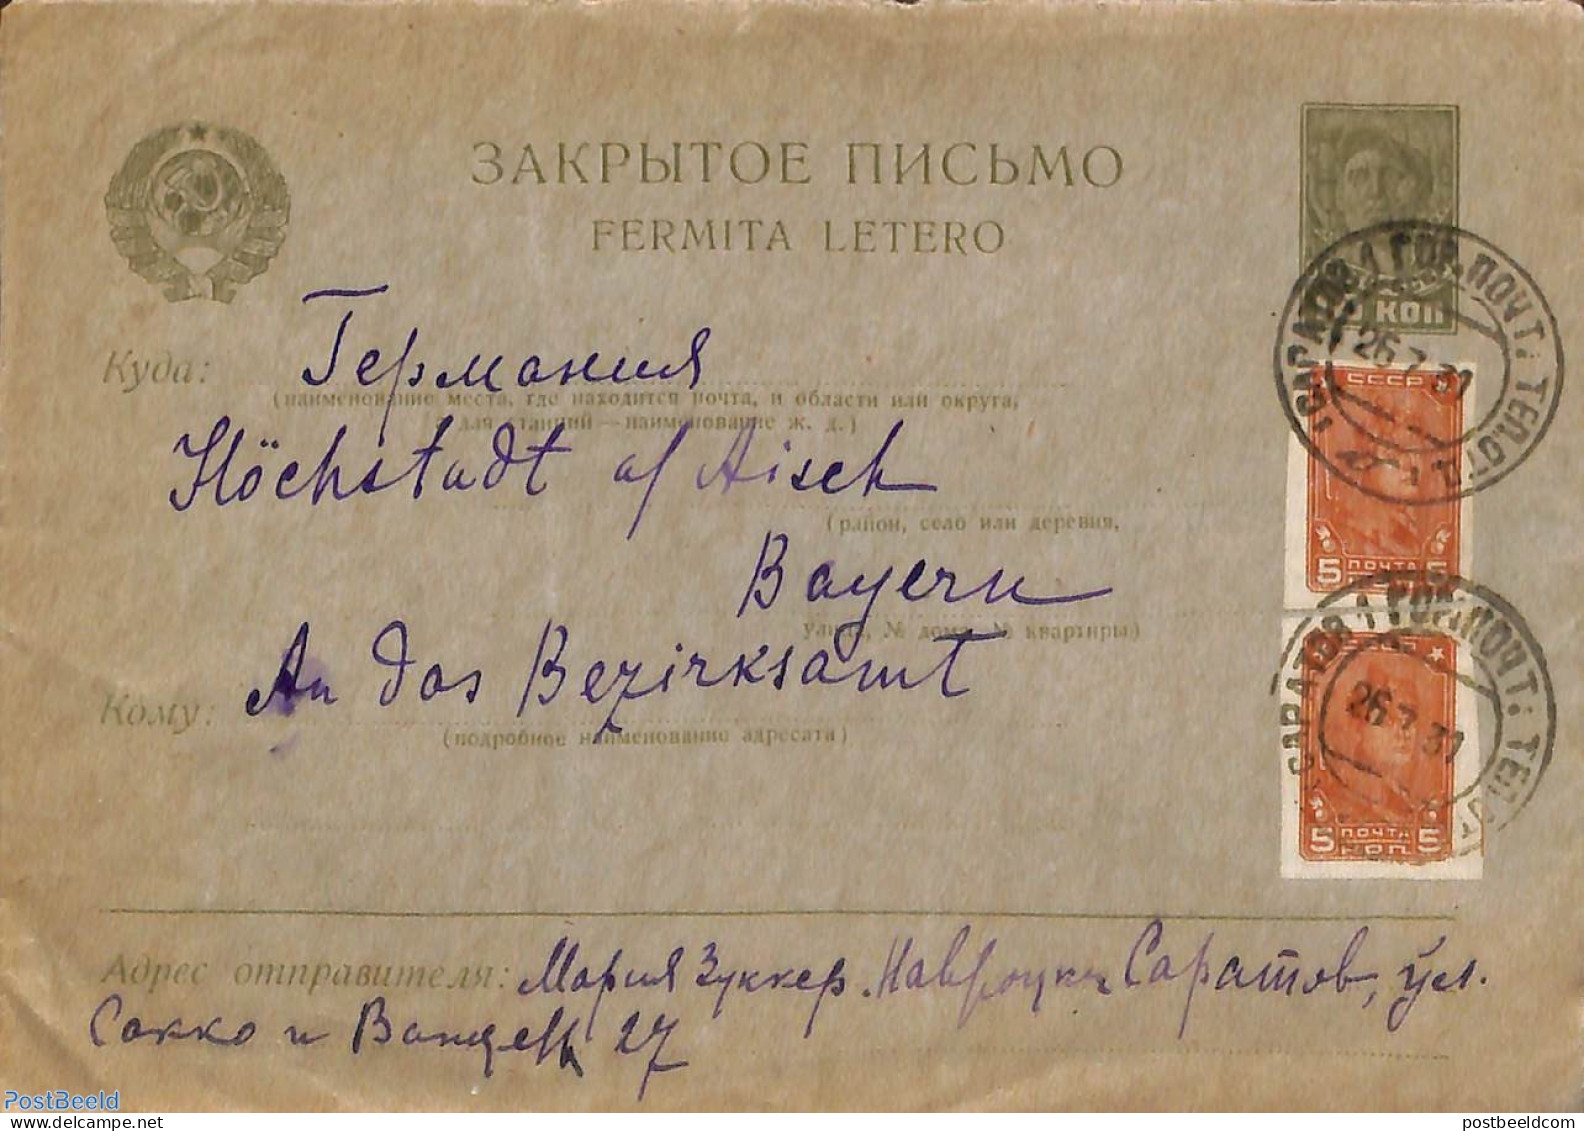 ЗАКРЫТОЕ ПИСЬМО
FERMITA LETERO
КОП
Куда: Германия
(наименование места, где находится почта, и области или округа,
а для станций — наименование ж. д.)
Höchstadt a/ Aisch
(район, село или деревня,
Bayern
улица, № дома, № квартиры)
Кому: An das Bezirksamt
(подробное наименование адресата)
САРАТОВ 1 ГОР. ПОЧТ: ТЕЛ.
26.7.31
СССР
5 ПОЧТА 5
САРАТОВ 1 ГОР. ПОЧТ: ТЕЛ.
26.7.31
СССР
5 ПОЧТА 5
КОП.
Адрес отправителя: Мария Зуккер. Саратов, ул.
Сакко и Ванцетти 27
PostBeeld
postbeeldcom